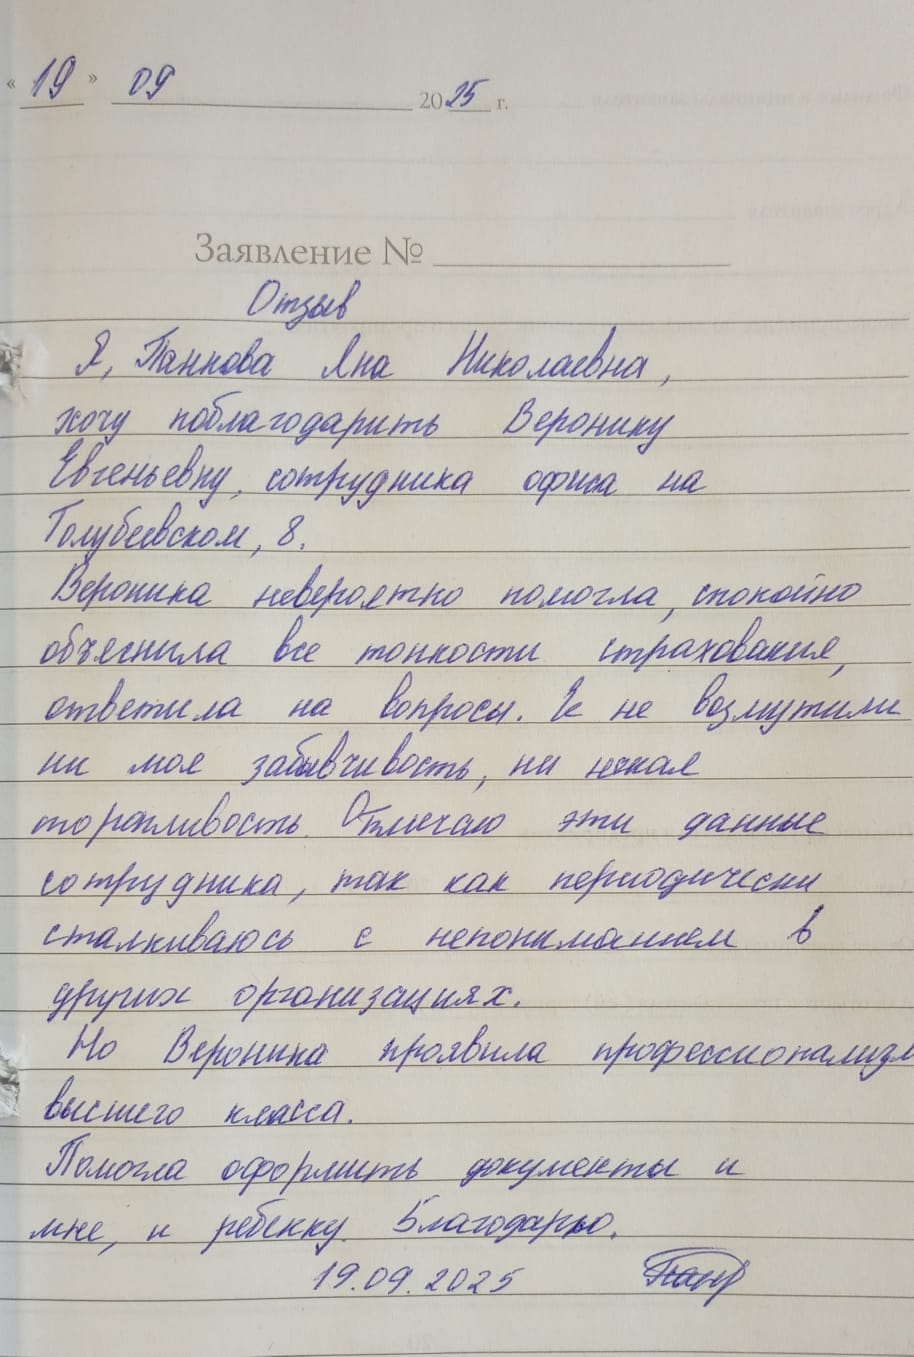 « 19 » 09 2025 г.
Заявление №
Отзыв
Я, Панкова Яна Николаевна,
хочу поблагодарить Веронику
Евгеньевну, сотрудника офиса на
Голубеевском, 8.
Вероника невероятно помогла, спокойно
объяснила все тонкости страхования,
ответила на вопросы. И не возмутили
ни моя забывчивость, ни некая
торопливость. Отмечаю эти данные
сотрудника, так как периодически
сталкиваюсь с непониманием в
других организациях.
Но Вероника проявила профессионализм
высшего класса.
Помогла оформить документы и
мне, и ребенку. Благодарю.
19.09.2025